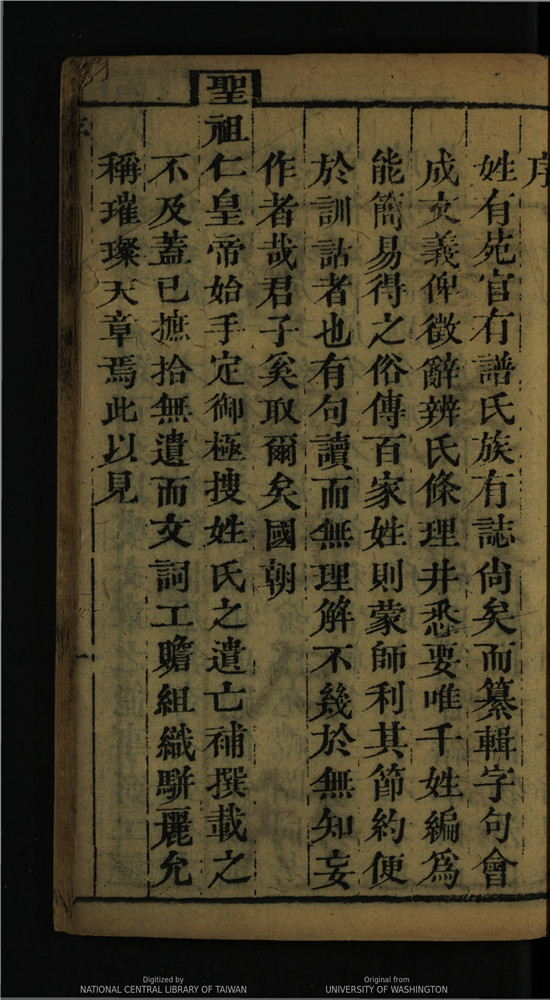 序
姓有苑官有譜氏族有誌尙矣而纂輯字句會
成文義俾徵辭辨氏條理井悉要唯千姓編爲
能簡易得之俗傳百家姓則蒙師利其節約便
於訓詁者也有句讀而無理解不幾於無知妄
作者哉君子奚取爾矣國朝
聖祖仁皇帝始手定御極搜姓氏之遺亡補撰載之
不及蓋已摭拾無遺而文詞工贍組織駢麗允
稱璀璨天章焉此以見
序
一
Digitized by
NATIONAL CENTRAL LIBRARY OF TAIWAN
Original from
UNIVERSITY OF WASHINGTON